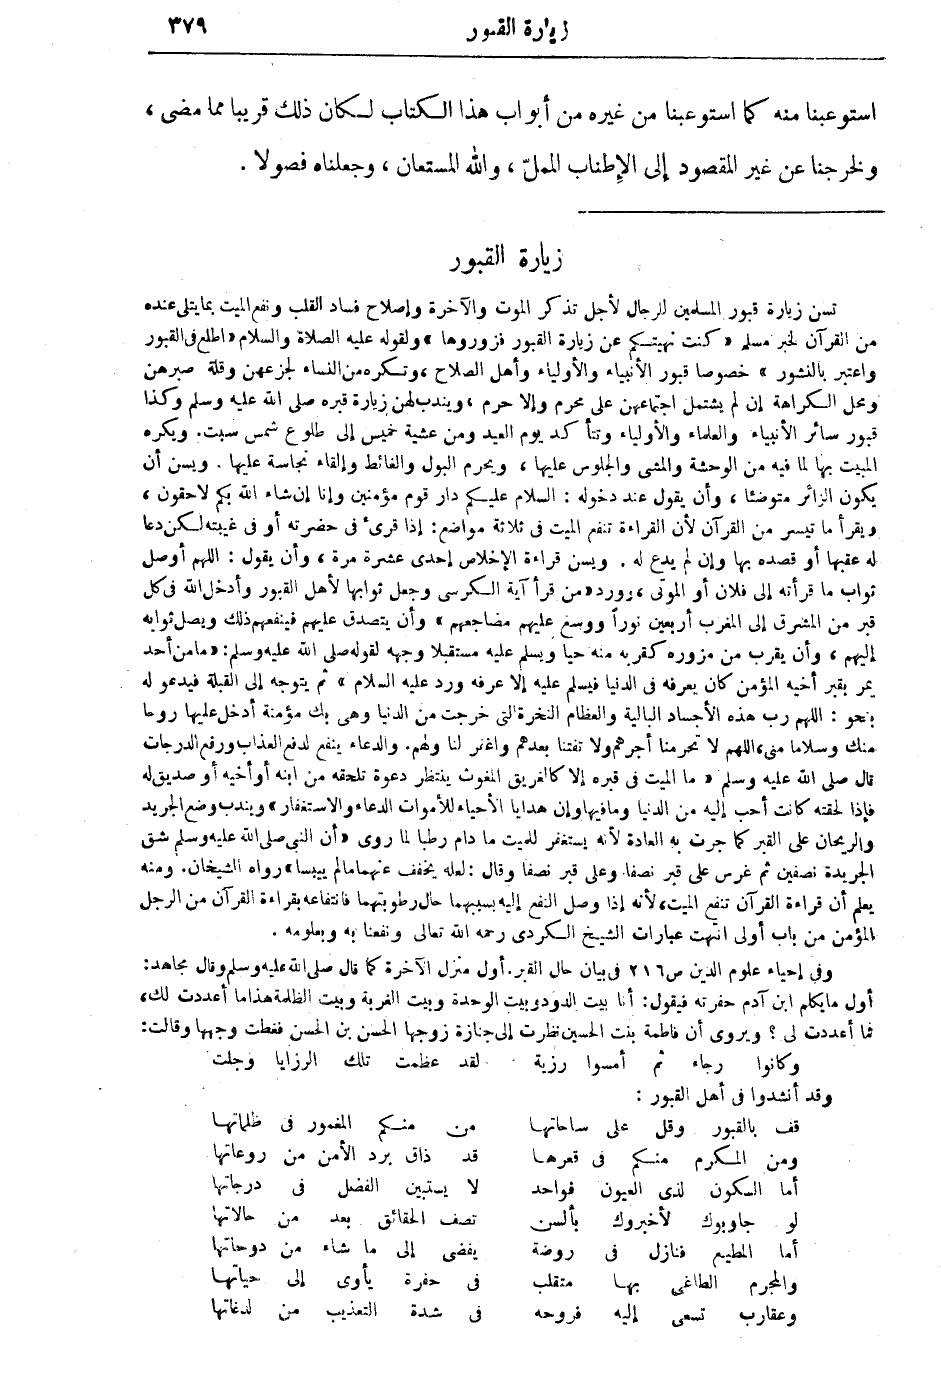 زيارة القبور ٣٧٩
استوعبنا منه كما استوعبنا من غيره من أبواب هذا الكتاب لكان ذلك قريبا مما مضى ،
ولخرجنا عن غير المقصود إلى الإطناب المملّ ، والله المستعان ، وجعلناه فصولا .
زيارة القبور
تسن زيارة قبور المسلمين للرجال لأجل تذكر الموت والآخرة وإصلاح فساد القلب ونفع الميت بما يتلى عنده
من القرآن لخبر مسلم « كنت نهيتكم عن زيارة القبور فزوروها » ولقوله عليه الصلاة والسلام « اطلع فى القبور
واعتبر بالنشور » خصوصا قبور الأنبياء والأولياء وأهل الصلاح ، وتكره من النساء لجزعهن وقلة صبرهن
ومحل الكراهة إن لم يشتمل اجتماعهن على محرم وإلا حرم ، ويندب لهن زيارة قبره صلى الله عليه وسلم وكذا
قبور سائر الأنبياء والعلماء والأولياء وتتأكد يوم العيد ومن عشية خميس إلى طلوع شمس سبت. ويكره
المبيت بها لما فيه من الوحشة والمشى والجلوس عليها ، ويحرم البول والغائط وإلقاء نجاسة عليها . ويسن أن
يكون الزائر متوضئا ، وأن يقول عند دخوله : السلام عليكم دار قوم مؤمنين وإنا إن شاء الله بكم لاحقون ،
ويقرأ ما تيسر من القرآن لأن القراءة تنفع الميت فى ثلاثة مواضع: إذا قرئ فى حضرته أو فى غيبته لكن دعا
له عقبها أو قصده بها وإن لم يدع له . ويسن قراءة الإخلاص إحدى عشرة مرة ، وأن يقول : اللهم أوصل
ثواب ما قرأته إلى فلان أو الموتى ، وورد « من قرأ آية الكرسى وجعل ثوابها لأهل القبور وأدخل الله فى كل
قبر من المشرق إلى المغرب أربعين نوراً ووسع عليهم مضاجعهم » وأن يتصدق عليهم فينفعهم ذلك ويصل ثوابه
إليهم ، وأن يقرب من مزوره كقربه منه حيا ويسلم عليه مستقبلا وجهه لقوله صلى الله عليه وسلم: « مامن أحد
يمر بقبر أخيه المؤمن كان يعرفه فى الدنيا فيسلم عليه إلا عرفه ورد عليه السلام » ثم يتوجه إلى القبلة فيدعو له
بنحو : اللهم رب هذه الأجساد البالية والعظام النخرة التى خرجت من الدنيا وهى بك مؤمنة أدخل عليها روحا
منك وسلاما منى، اللهم لا تحرمنا أجرهم ولا تفتنا بعدهم واغفر لنا ولهم. والدعاء ينفع لدفع العذاب ورفع الدرجات
قال صلى الله عليه وسلم « ما الميت فى قبره إلا كالغريق المغوث ينتظر دعوة تلحقه من ابنه أو أخيه أو صديق له
فإذا لحقته كانت أحب إليه من الدنيا ومافيها وإن هدايا الأحياء للأموات الدعاء والاستغفار » ويندب وضع الجريد
والريحان على القبر كما جرت به العادة لأنه يستغفر للميت ما دام رطبا لما روى « أن النبى صلى الله عليه وسلم شق
الجريدة نصفين ثم غرس على قبر نصفا وعلى قبر نصفا وقال : لعله يخفف عنهما مالم ييبسا » رواه الشيخان. ومنه
يعلم أن قراءة القرآن تنفع الميت، لأنه إذا وصل النفع إليه بسببهما حال رطوبتهما فانتفاعه بقراءة القرآن من الرجل
المؤمن من باب أولى انتهت عبارات الشيخ الكردى رحمه الله تعالى ونفعنا به وبعلومه .
وفى إحياء علوم الدين ص ٢١٦ فى بيان حال القبر. أول منزل الآخرة كما قال صلى الله عليه وسلم وقال مجاهد:
أول مايكلم ابن آدم حفرته فيقول: أنا بيت الدود وبيت الوحدة وبيت الغربة وبيت الظلمة هذا ما أعددت لك،
فما أعددت لى ؟ ويروى أن فاطمة بنت الحسين نظرت إلى جنازة زوجها الحسن بن الحسن فغطت وجهها وقالت:
وكانوا رجاء ثم أمسوا رزية لقد عظمت تلك الرزايا وجلت
وقد أنشدوا فى أهل القبور :
قف بالقبور وقل على ساحاتها من منكم المغمور فى ظلماتها
ومن المكرم منكم فى قعرها قد ذاق برد الأمن من روعاتها
أما السكون لذى العيون فواحد لا يستبين الفضل فى درجاتها
لو جاوبوك لأخبروك بألسن تصف الحقائق بعد من حالاتها
أما المطيع فنازل فى روضة يفضى إلى ما شاء من دوحاتها
والمجرم الطاغى بها متقلب فى حفرة يأوى إلى حياتها
وعقارب تسعى إليه فروحه فى شدة التعذيب من لدغاتها